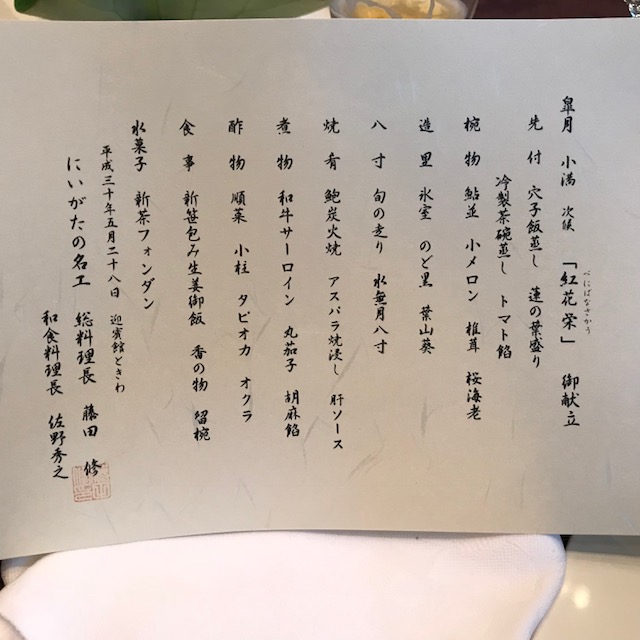 皐月 小満 次候 「紅花栄」 御献立
べにばなさかう
先付 穴子飯蒸し 蓮の葉盛り
冷製茶碗蒸し トマト餡
椀物 鮎並 小メロン 椎茸 桜海老
造里 氷室 のど黒 葉山葵
八寸 旬の走り 水無月八寸
焼肴 鮑炭火焼 アスパラ焼浸し 肝ソース
煮物 和牛サーロイン 丸茄子 胡麻餡
酢物 順菜 小柱 タピオカ オクラ
食事 新笹包み生姜御飯 香の物 留椀
水菓子 新茶フォンダン
平成三十年五月二十八日 迎賓館ときわ
にいがたの名工 総料理長 藤田 修
和食料理長 佐野秀之